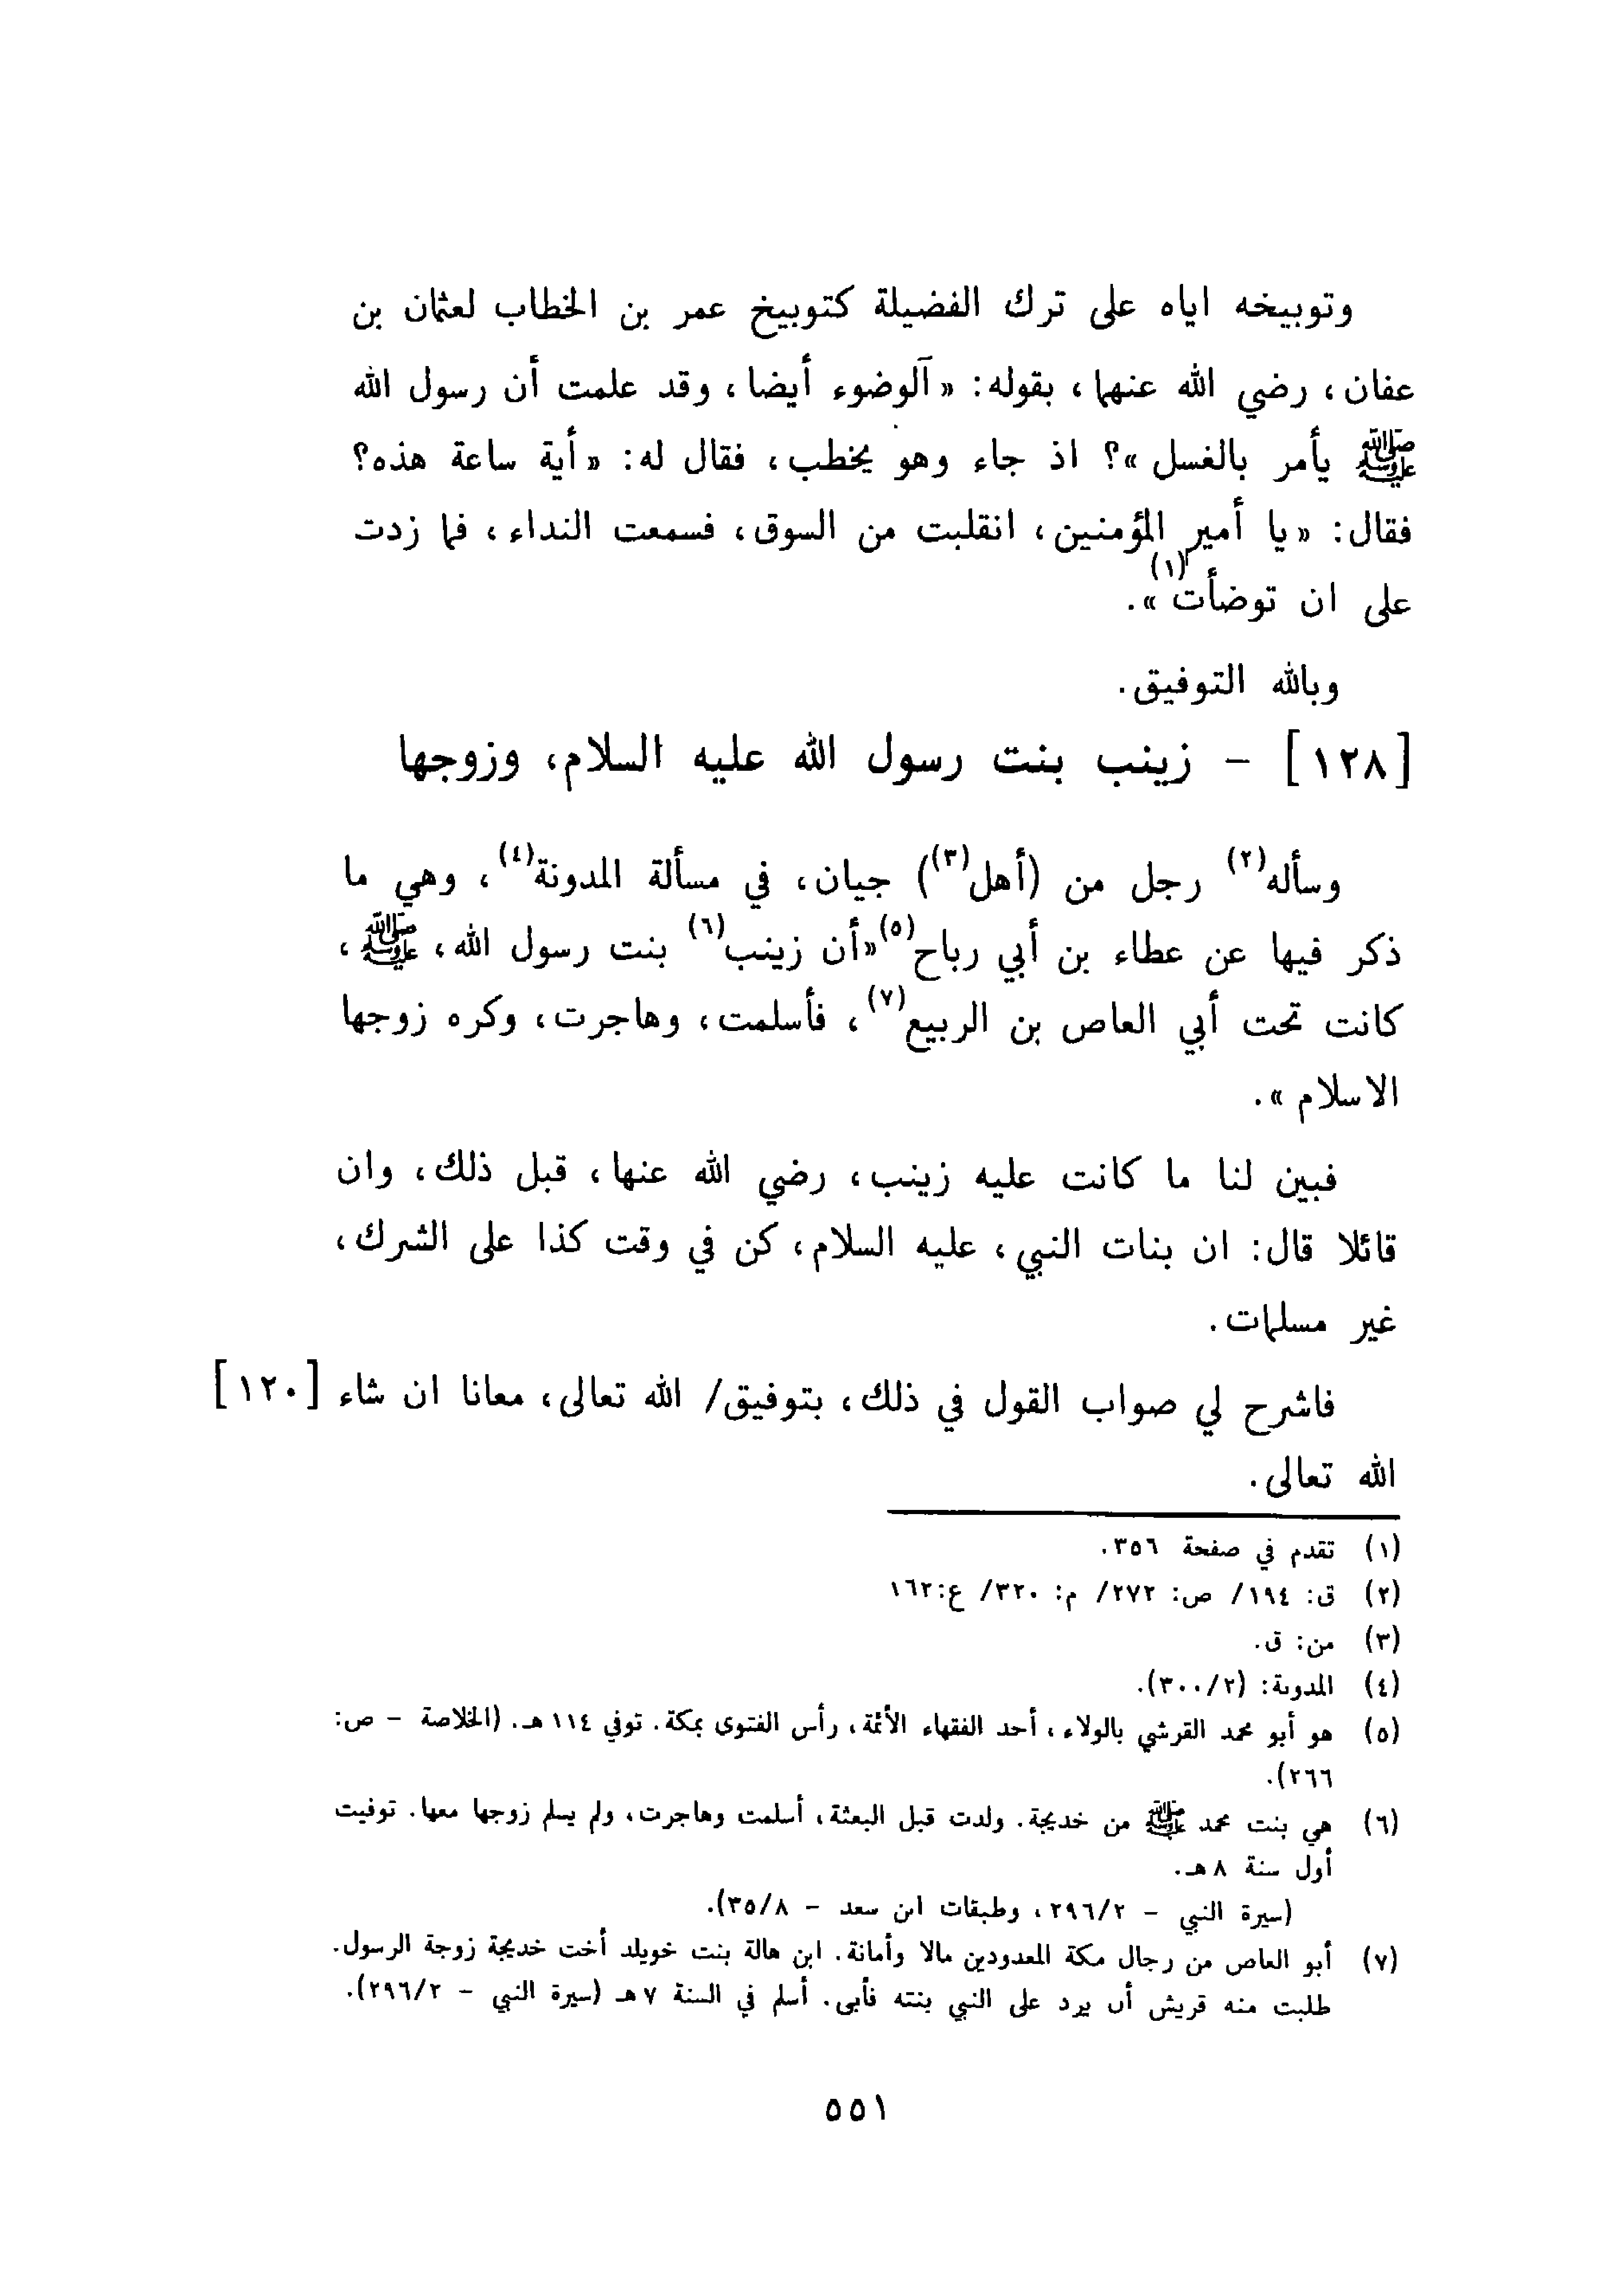 وتوبيخه اياه على ترك الفضيلة كتوبيخ عمر بن الخطاب لعثمان بن
عفان، رضي الله عنهما، بقوله: «آلوضوء أيضا، وقد علمت أن رسول الله
ﷺ يأمر بالغسل»؟ اذ جاء وهو يخطب، فقال له: «أية ساعة هذه؟
فقال: «يا أمير المؤمنين، انقلبت من السوق، فسمعت النداء، فما زدت
على ان توضأت(١)».
وبالله التوفيق.
[١٢٨] - زينب بنت رسول الله عليه السلام، وزوجها
وسأله(٢) رجل من (أهل(٣)) جيان، في مسألة المدونة(٤)، وهي ما
ذكر فيها عن عطاء بن أبي رباح(٥)«أن زينب(٦) بنت رسول الله، ﷺ،
كانت تحت أبي العاص بن الربيع(٧)، فأسلمت، وهاجرت، وكره زوجها
الاسلام».
فبين لنا ما كانت عليه زينب، رضي الله عنها، قبل ذلك، وان
قائلا قال: ان بنات النبي، عليه السلام، كن في وقت كذا على الشرك،
غير مسلمات.
فاشرح لي صواب القول في ذلك، بتوفيق/ الله تعالى، معانا ان شاء [١٢٠]
الله تعالى.
(١) تقدم في صفحة ٣٥٦.
(٢) ق: ١٩٤/ ص: ٢٧٢/ م: ٣٢٠/ ع:١٦٢
(٣) من: ق.
(٤) المدونة: (٣٠٠/٢).
(٥) هو أبو محمد القرشي بالولاء، أحد الفقهاء الأئمة، رأس الفتوى بمكة. توفي ١١٤ هـ. (الخلاصة - ص:
٢٦٦).
(٦) هي بنت محمد ﷺ من خديجة. ولدت قبل البعثة، أسلمت وهاجرت، ولم يسلم زوجها معها. توفيت
أول سنة ٨ هـ.
(سيرة النبي - ٢٩٦/٢، وطبقات ابن سعد - ٣٥/٨).
(٧) أبو العاص من رجال مكة المعدودين مالا وأمانة. ابن هالة بنت خويلد أخت خديجة زوجة الرسول.
طلبت منه قريش أن يرد على النبي بنته فأبى. أسلم في السنة ٧ هـ (سيرة النبي - ٢٩٦/٢).
٥٥١